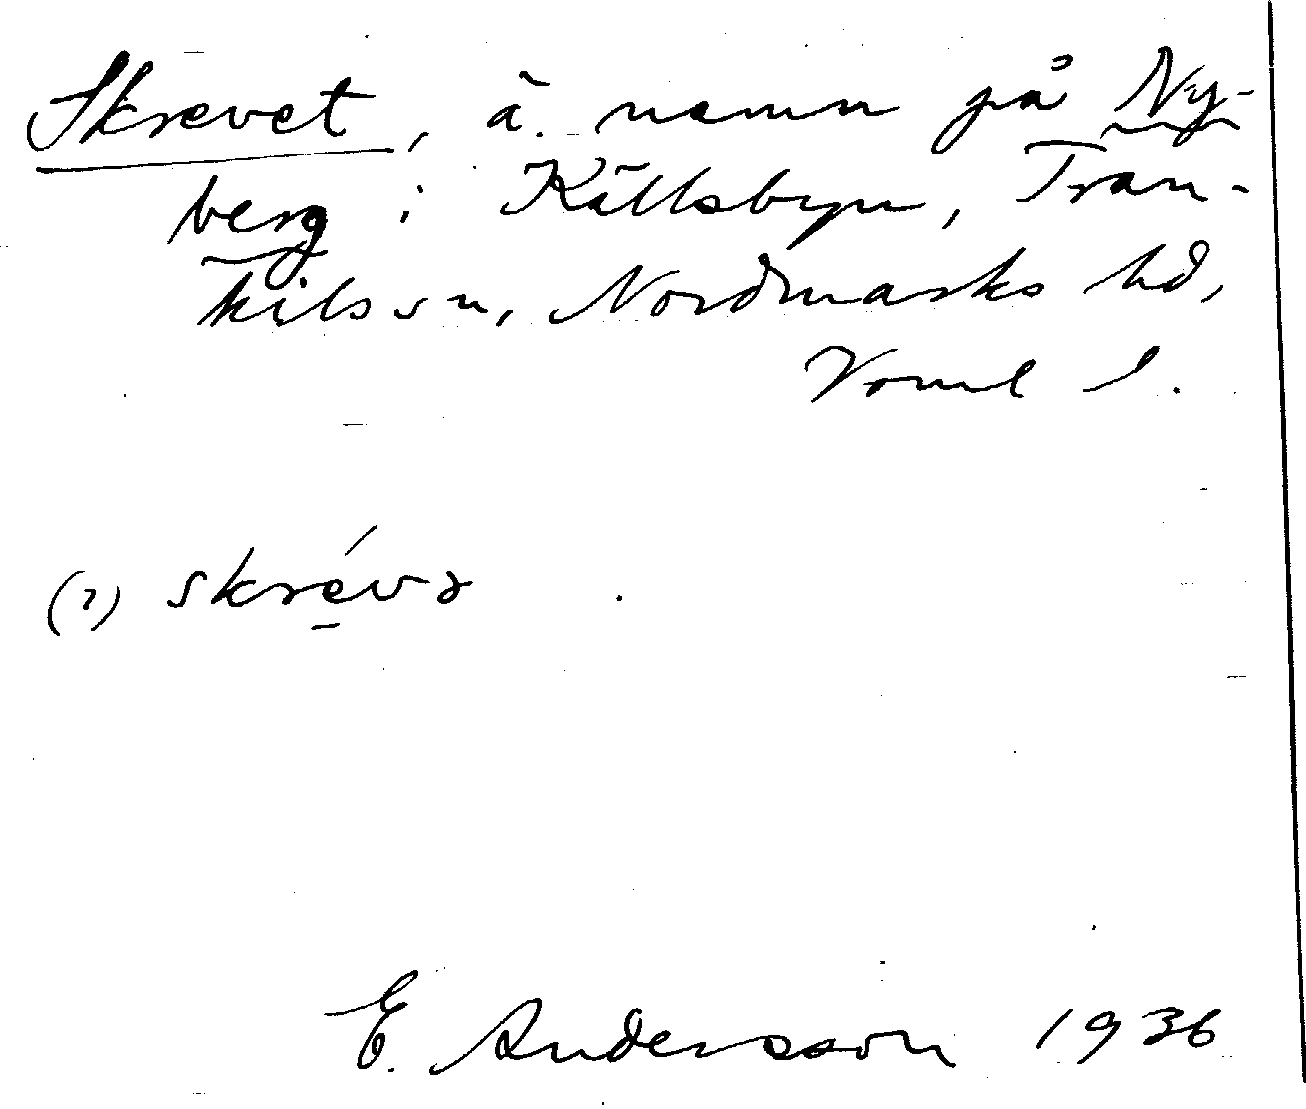 Skrevet, ä. namn på Ny-
berg i Källsbyn, Tran-
kils sn, Nordmarks hd,
Vrml l.
(?) skrévə
E. Andersson 1936